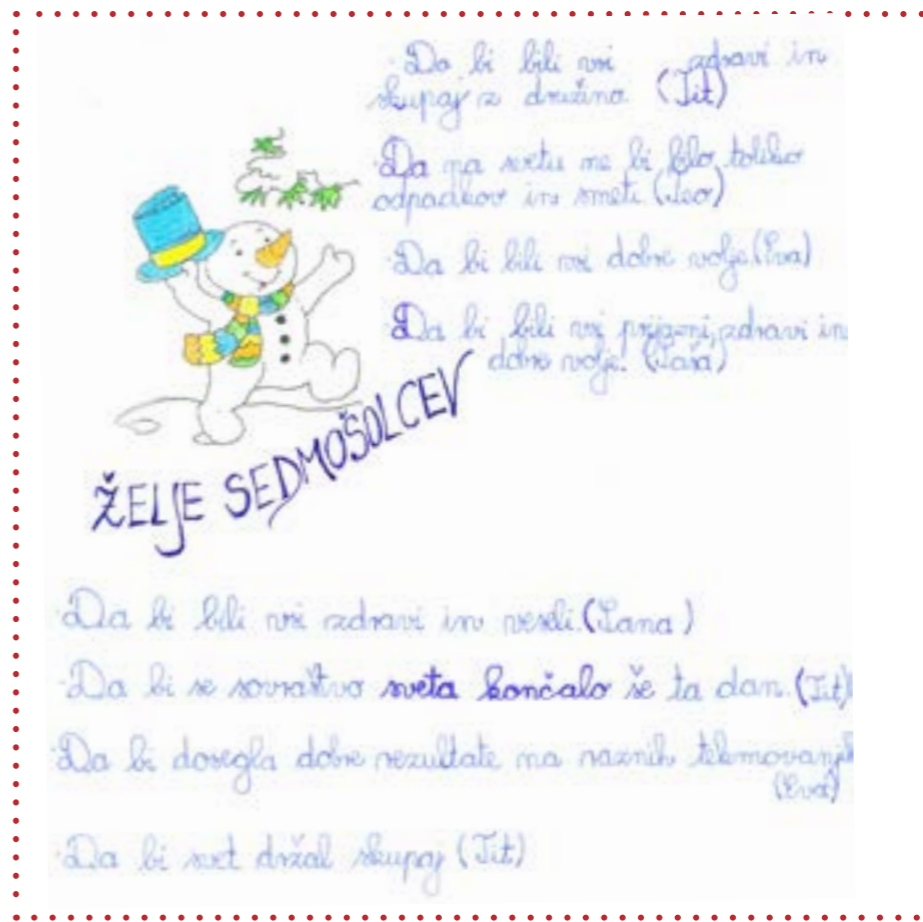 Da bi bili vsi zdravi in
skupaj z družino. (Tit)
Da na svetu ne bi bilo toliko
odpadkov in smeti. (Teo)
Da bi bili vsi dobre volje (Eva)
Da bi bili vsi prijazni, zdravi in
dobre volje. (Taša)
ŽELJE SEDMOŠOLCEV
Da bi bili vsi zdravi in veseli. (Lana)
Da bi se sovraštvo sveta končalo še ta dan. (Tit)
Da bi dosegla dobre rezultate na raznih tekmovanjih
(Eva)
Da bi svet držal skupaj (Tit)